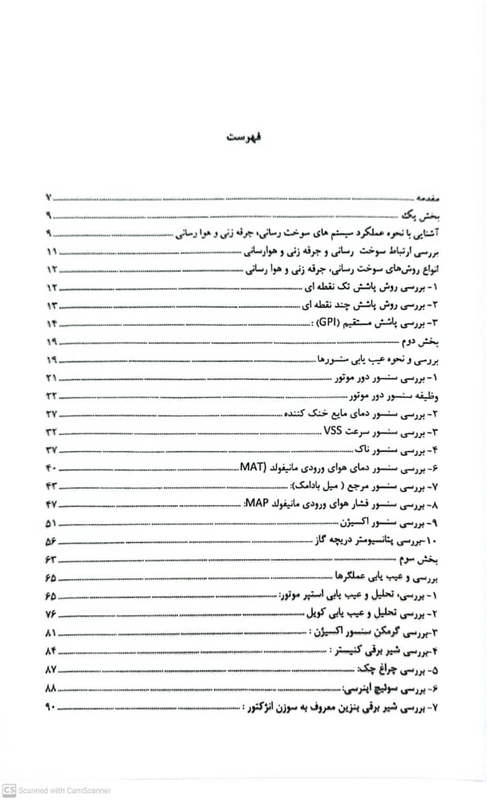 فهرست
مقدمه ... ۷
بخش یک ... ۹
آشنایی با نحوه عملکرد سیستم های سوخت رسانی، جرقه زنی و هوا رسانی ... ۹
بررسی ارتباط سوخت رسانی و جرقه زنی و هوارسانی ... ۱۱
انواع روش‌های سوخت رسانی، جرقه زنی و هوا رسانی ... ۱۲
۱- بررسی روش پاشش تک نقطه ای ... ۱۲
۲- بررسی روش پاشش چند نقطه ای ... ۱۳
۳- بررسی پاشش مستقیم (GPI): ... ۱۴
بخش دوم ... ۱۹
بررسی و نحوه عیب یابی سنسورها ... ۱۹
۱- بررسی سنسور دور موتور ... ۲۱
وظیفه سنسور دور موتور ... ۲۲
۲- بررسی سنسور دمای مایع خنک کننده ... ۲۷
۳- بررسی سنسور سرعت VSS ... ۳۲
۴- بررسی سنسور ناک ... ۳۷
۶- بررسی سنسور دمای هوای ورودی مانیفولد (MAT ... ۴۰
۷- بررسی سنسور مرجع ( میل بادامک): ... ۴۳
۸- بررسی سنسور فشار هوای ورودی مانیفولد MAP: ... ۴۷
۹- بررسی سنسور اکسیژن ... ۵۱
۱۰-بررسی پتانسیومتر دریچه گاز ... ۵۶
بخش سوم ... ۶۳
بررسی و عیب یابی عملگرها ... ۶۵
۱- بررسی، تحلیل و عیب یابی استپر موتور: ... ۶۵
۲- بررسی تحلیل و عیب یابی کویل ... ۷۶
۳-بررسی گرمکن سنسور اکسیژن : ... ۸۱
۴-بررسی شیر برقی کنیستر : ... ۸۴
۵- بررسی چراغ چک: ... ۸۷
۶- بررسی سوئیچ اینرسی: ... ۸۸
۷- بررسی شیر برقی بنزین معروف به سوزن انژکتور : ... ۹۰
CS Scanned with CamScanner